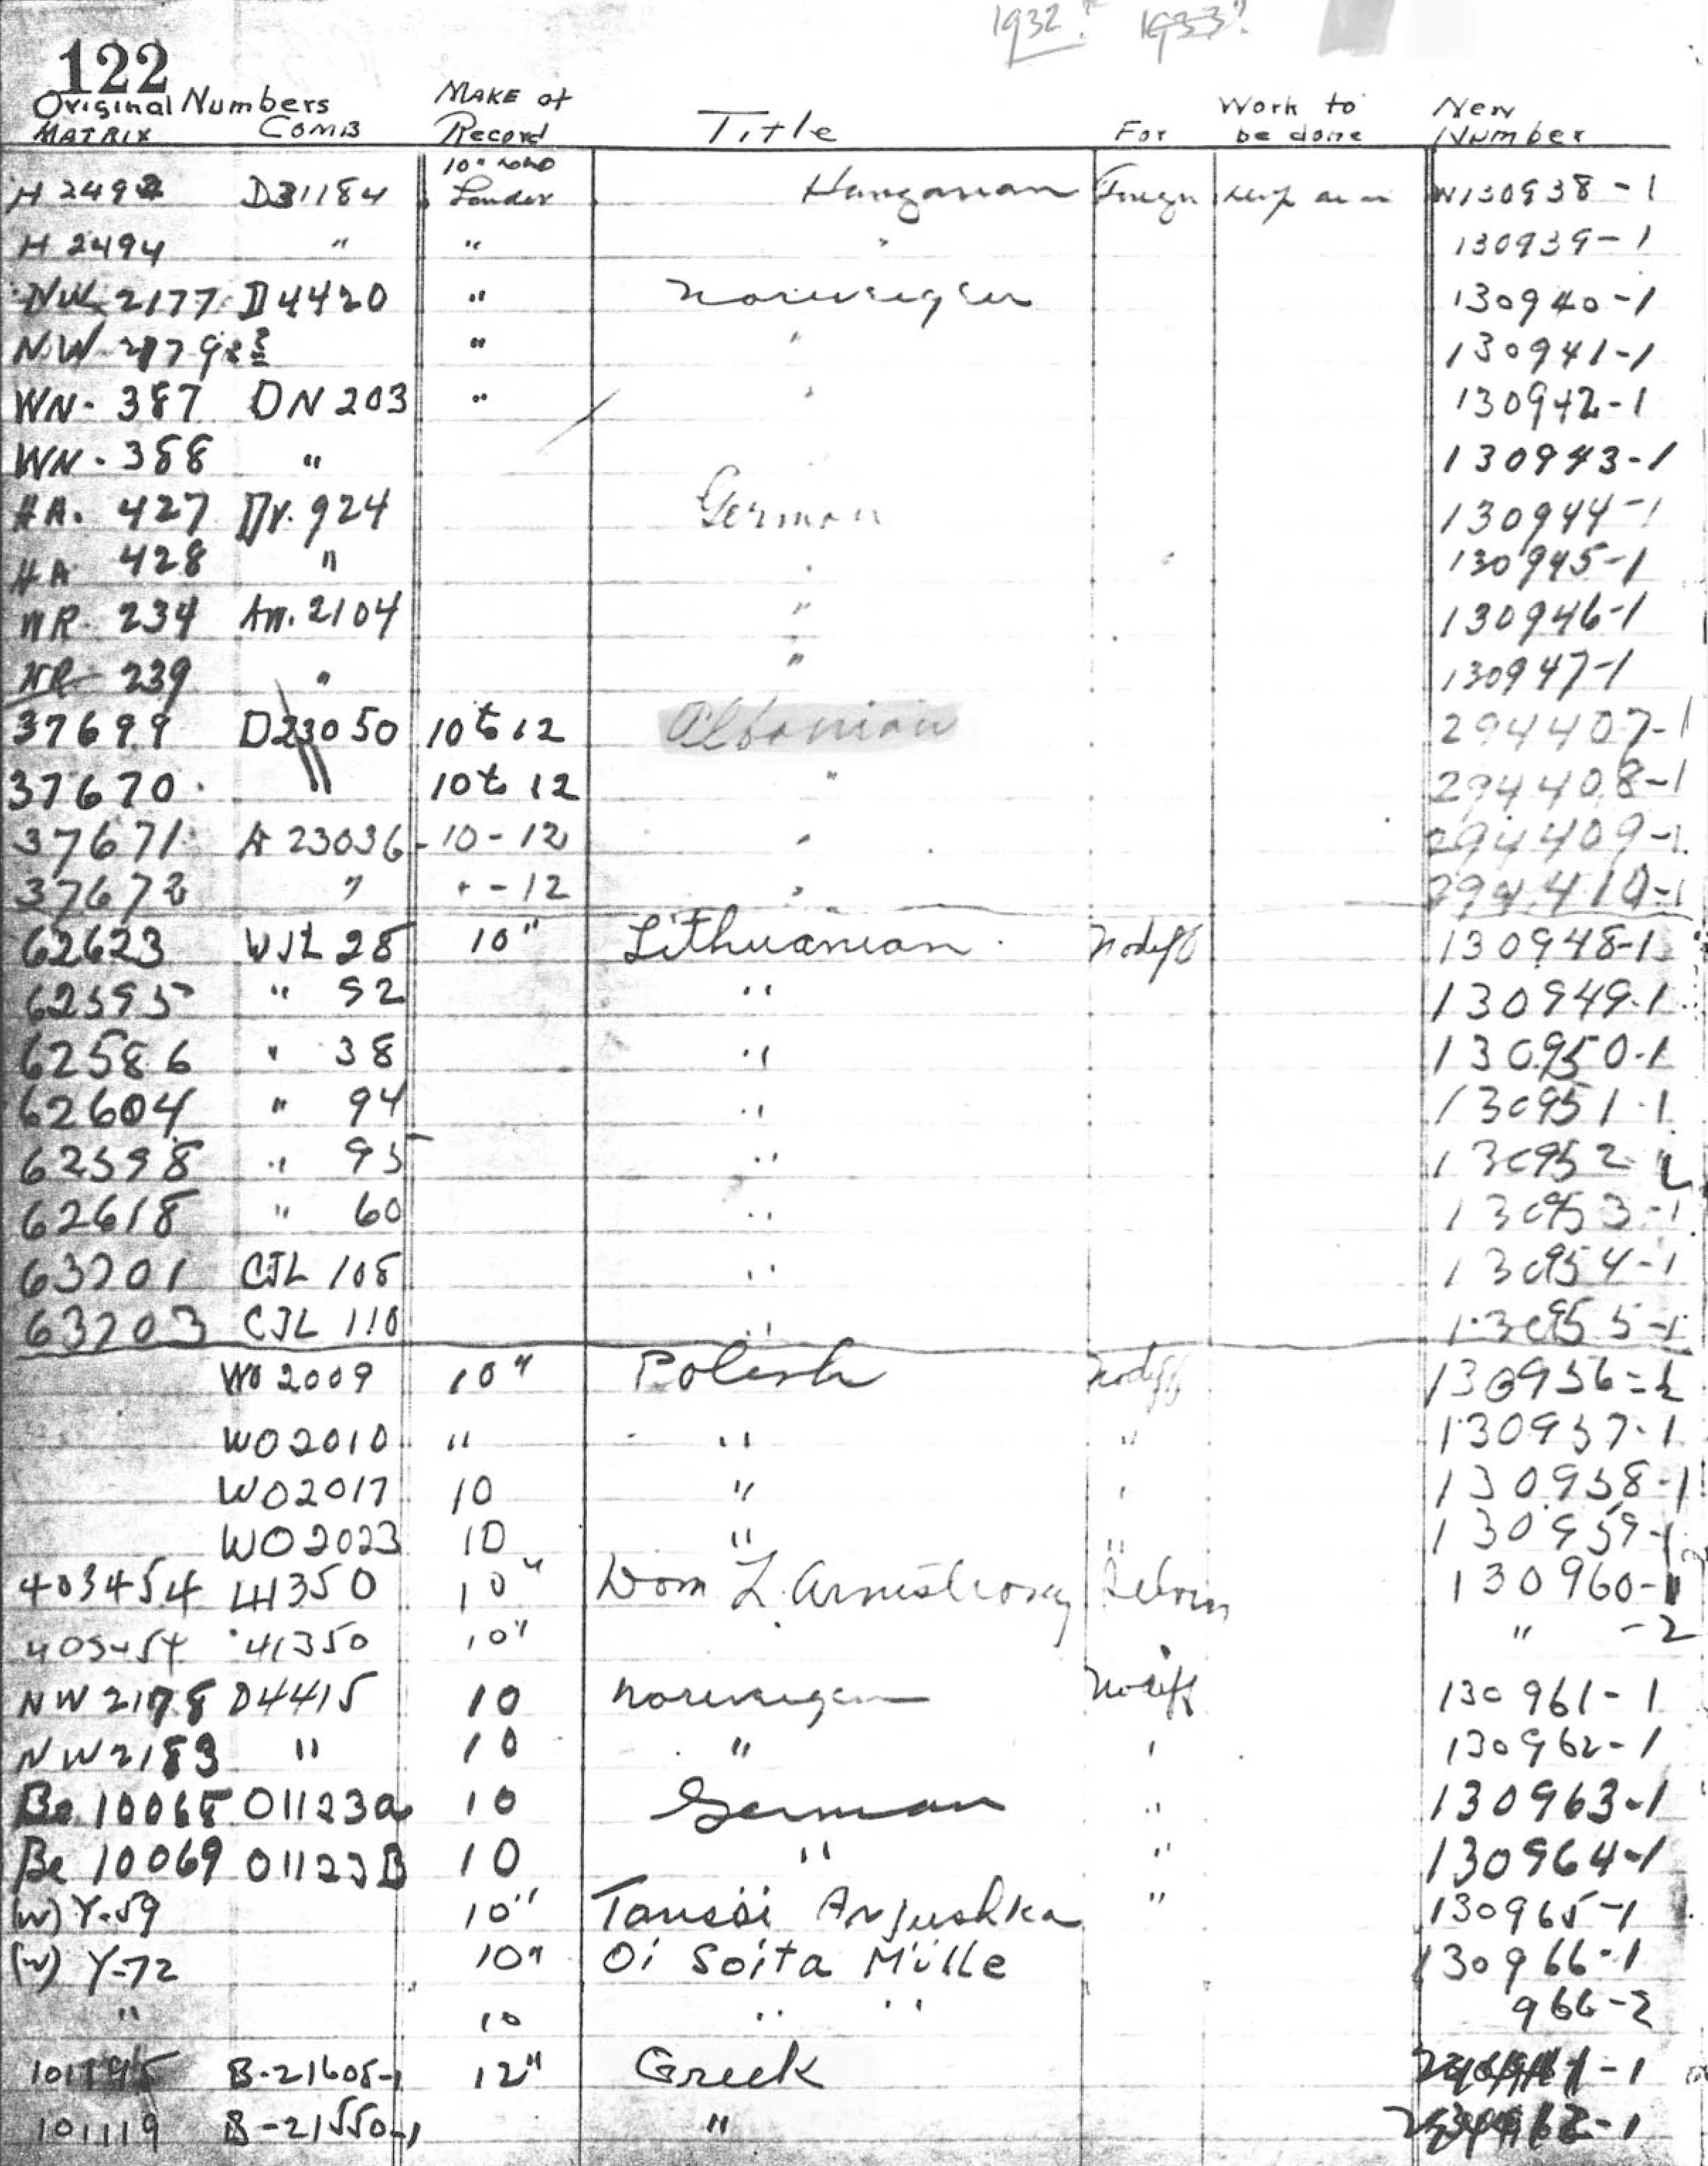 1932? 1933?
122
Original Numbers MAKE of Work to New
MATRIX COMB Record Title For be done Number
10"
H 2493 D31184 Hungarian Foreign W130938-1
H 2494 " " " 130939-1
NW 2177 D4420 " Norwegian 130940-1
NW 2179 " " 130941-1
WN- 387 DN 203 " " 130942-1
WN- 388 " 130943-1
HA. 427 924 German 130944-1
HA 428 " " 130945-1
WR 234 2104 " 130946-1
239 " " 130947-1
37699 D23050 10 to 12 Albanian 294407-1
37670 " 10 to 12 " 294408-1
37671 A 23036 -10-12 " 294409-1
37672 " " -12 " 294410-1
62623 WJL 28 10" Lithuanian 130948-1
62595 " 52 " 130949-1
62586 " 38 " 130950-1
62604 " 94 " 130951-1
62598 " 95 " 130952
62618 " 60 " 130953-1
63201 CJL 108 " 130954-1
63203 CJL 110 " 130955-1
WO 2009 10" Polish 130956
WO 2010 " " " 130957-1
WO 2017 10 " " 130958-1
WO 2023 10 " " 130959-1
403454 41350 10" L. Armstrong 130960-1
403454 41350 10" " -2
NW 2178 D4415 10 Norwegian 130961-1
NW 2183 " 10 " " 130962-1
Be 10068 01123a 10 German " 130963-1
Be 10069 01123B 10 " " 130964-1
(W) Y-59 10" Tanssi Anjushka " 130965-1
(W) Y-72 10" Oi Soita Mulle 130966-1
" 10 " " 966-2
B-21605-1 12" Greek -1
101119 B-21550-1 " -1